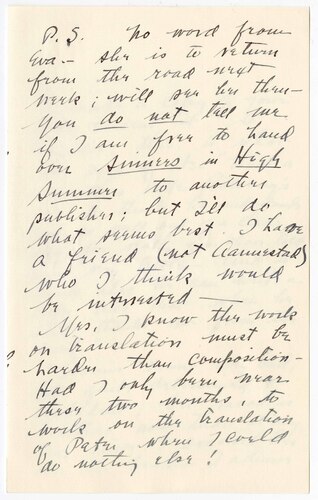 P.S. No word from
Eva — she is to return
from the road next
week; will see her then—
You do not tell me
if I am free to hand
over Sinners in High
Summer to another
publisher; but I'll do
what seems best. I have
a friend (not Aannestad)
who I think would
be interested —
Yes, I know the work
on translation must be
harder than composition—
Had I only been near
these two months, to
work on the translation
of Peter when I could
do nothing else!